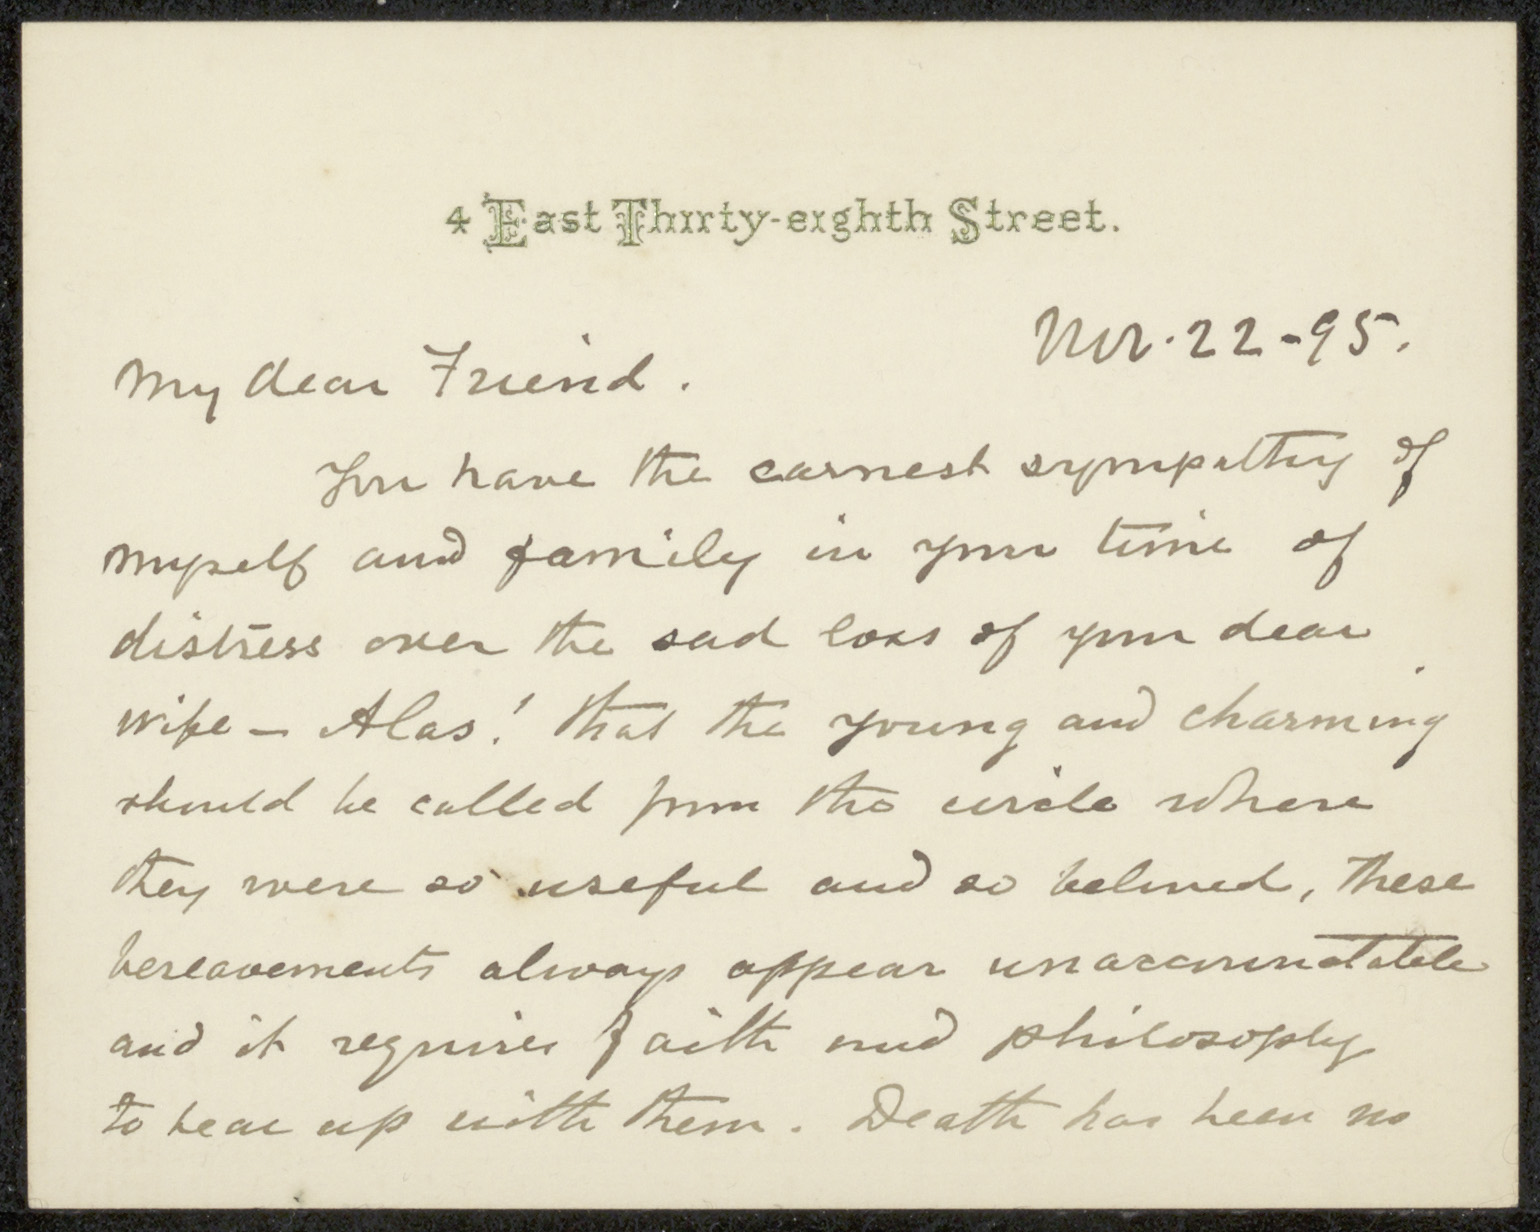 4 East Thirty-eighth Street.
Nov. 22-95.
My dear Friend.
You have the earnest sympathy of
myself and family in your time of
distress over the sad loss of your dear
wife - Alas! that the young and charming
should be called from the circle where
they were so useful and so beloved, These
bereavements always appear unaccountable
and it requires faith and philosophy
to bear up with them. Death has been no